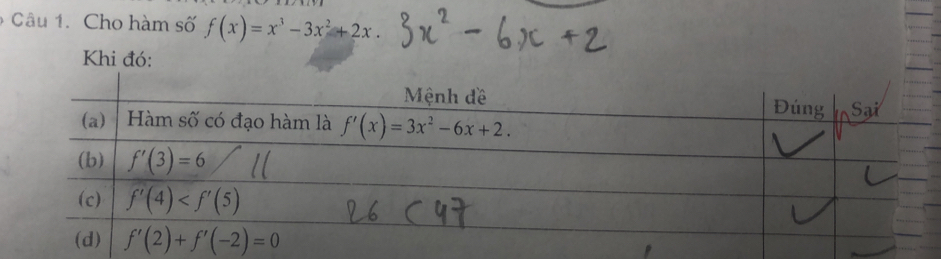 Câu 1. Cho hàm số f(x) = x³ − 3x² + 2x. 3x² − 6x + 2
Khi đó:
Mệnh đề Đúng Sai
(a) Hàm số có đạo hàm là f'(x) = 3x² − 6x + 2. ✓
(b) f'(3) = 6 11 ✓
(c) f'(4) < f'(5) 26 < 47 ✓
(d) f'(2) + f'(−2) = 0